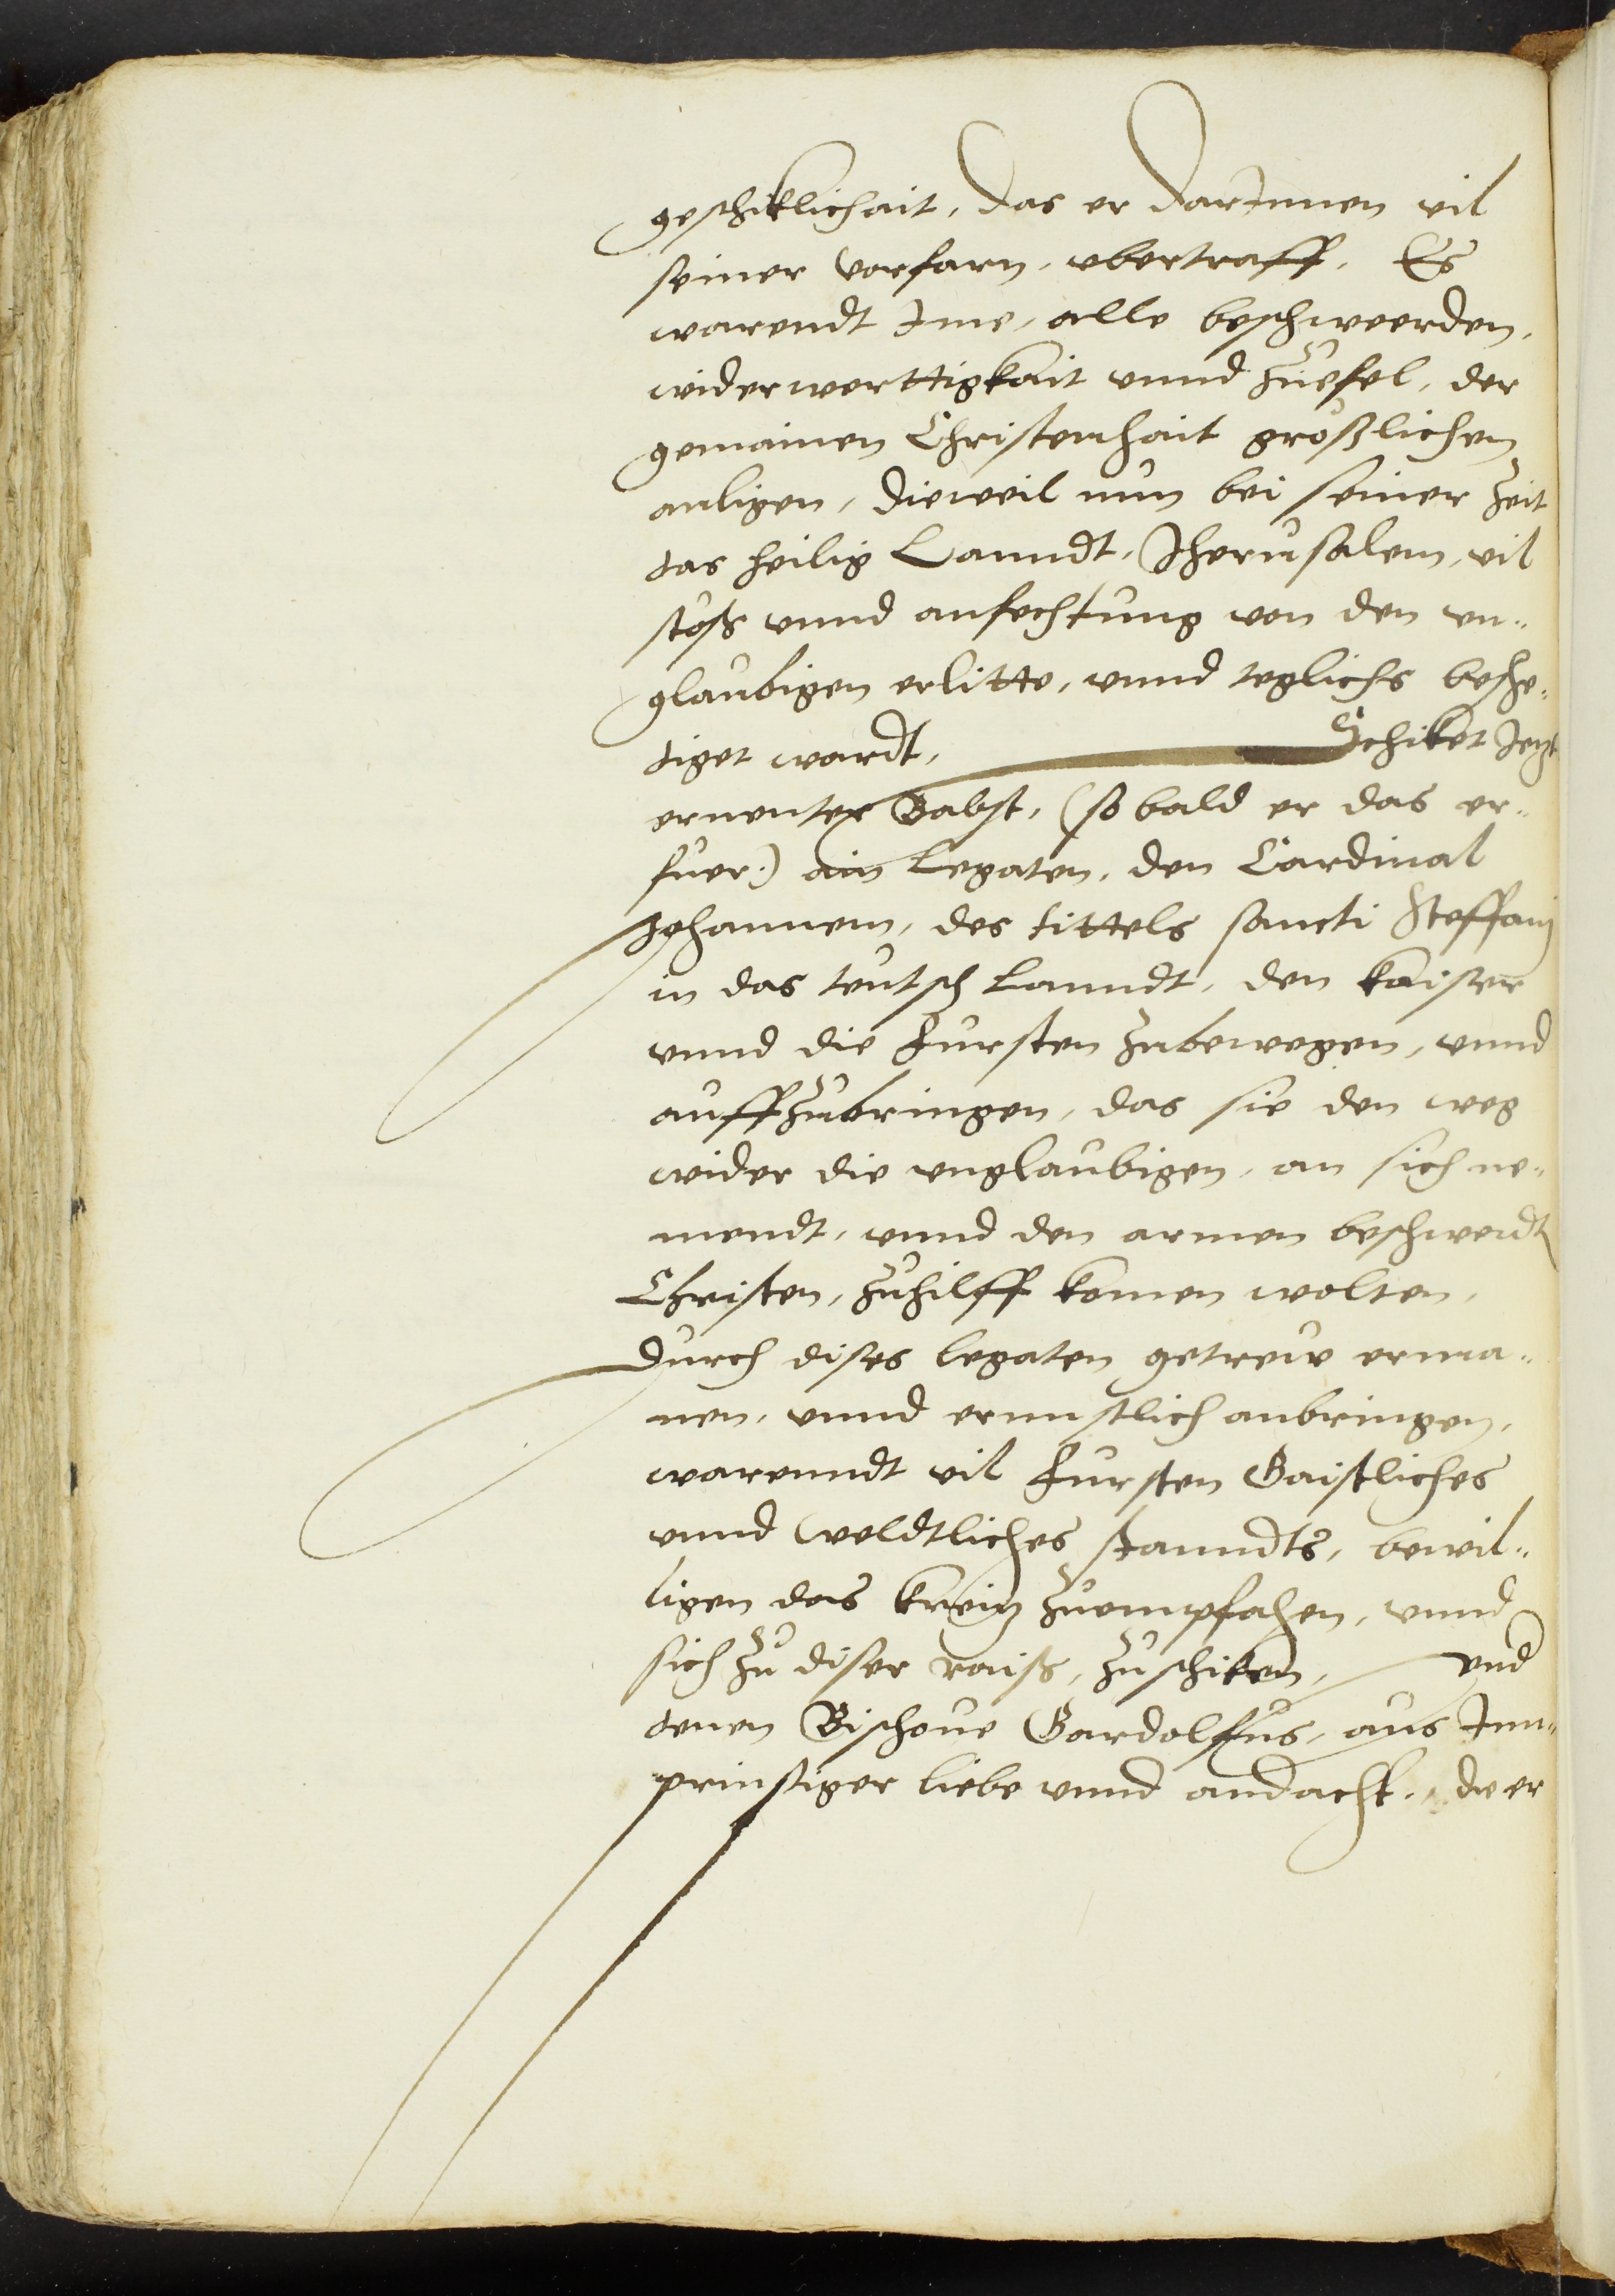 geschiklichait, das er darJnnen vil
seiner vorfarn, vbertraff, Es
warendt Jme, alle beschweerden,
widerwerttigkait vnnd zuefel, der
gemainen Christenhait großlichen
anligen, dieweil nun bei seiner Zeit
das heilig Lanndt, Jherusalem, vil
stoß vnnd anfechtung von den vn¬
glaubigen erlitte, vnnd teglichs besche¬
diget wardt, Schiket Jezt
ernenter Babst, (so bald er das er¬
fuer.) ain Legaten, den Cardinal
Johannem, des tittels sancti Steffani
in das teutsch Lanndt, den kaiser
vnnd die Fursten zubewegen, vnnd
auffzubringen, das sie den weg
wider die vnglaubigen, an sich ne¬
mendt, vnnd den armen beschwerdt
Christen, zuhilff komen wolten,
Durch dises legaten getreuw erma¬
nen, vnnd ernnstlich anbringen,
warenndt vil Fursten Gaistliches
vnnd Weldtliches stanndts, bewil¬
ligen das kreiz zuempfahen, vnnd
sich zu diser raiß, zu schiken, vnd
denen Bischoue Gardolffus, aus Jnn¬
prinstiger liebe vnnd andacht, die er